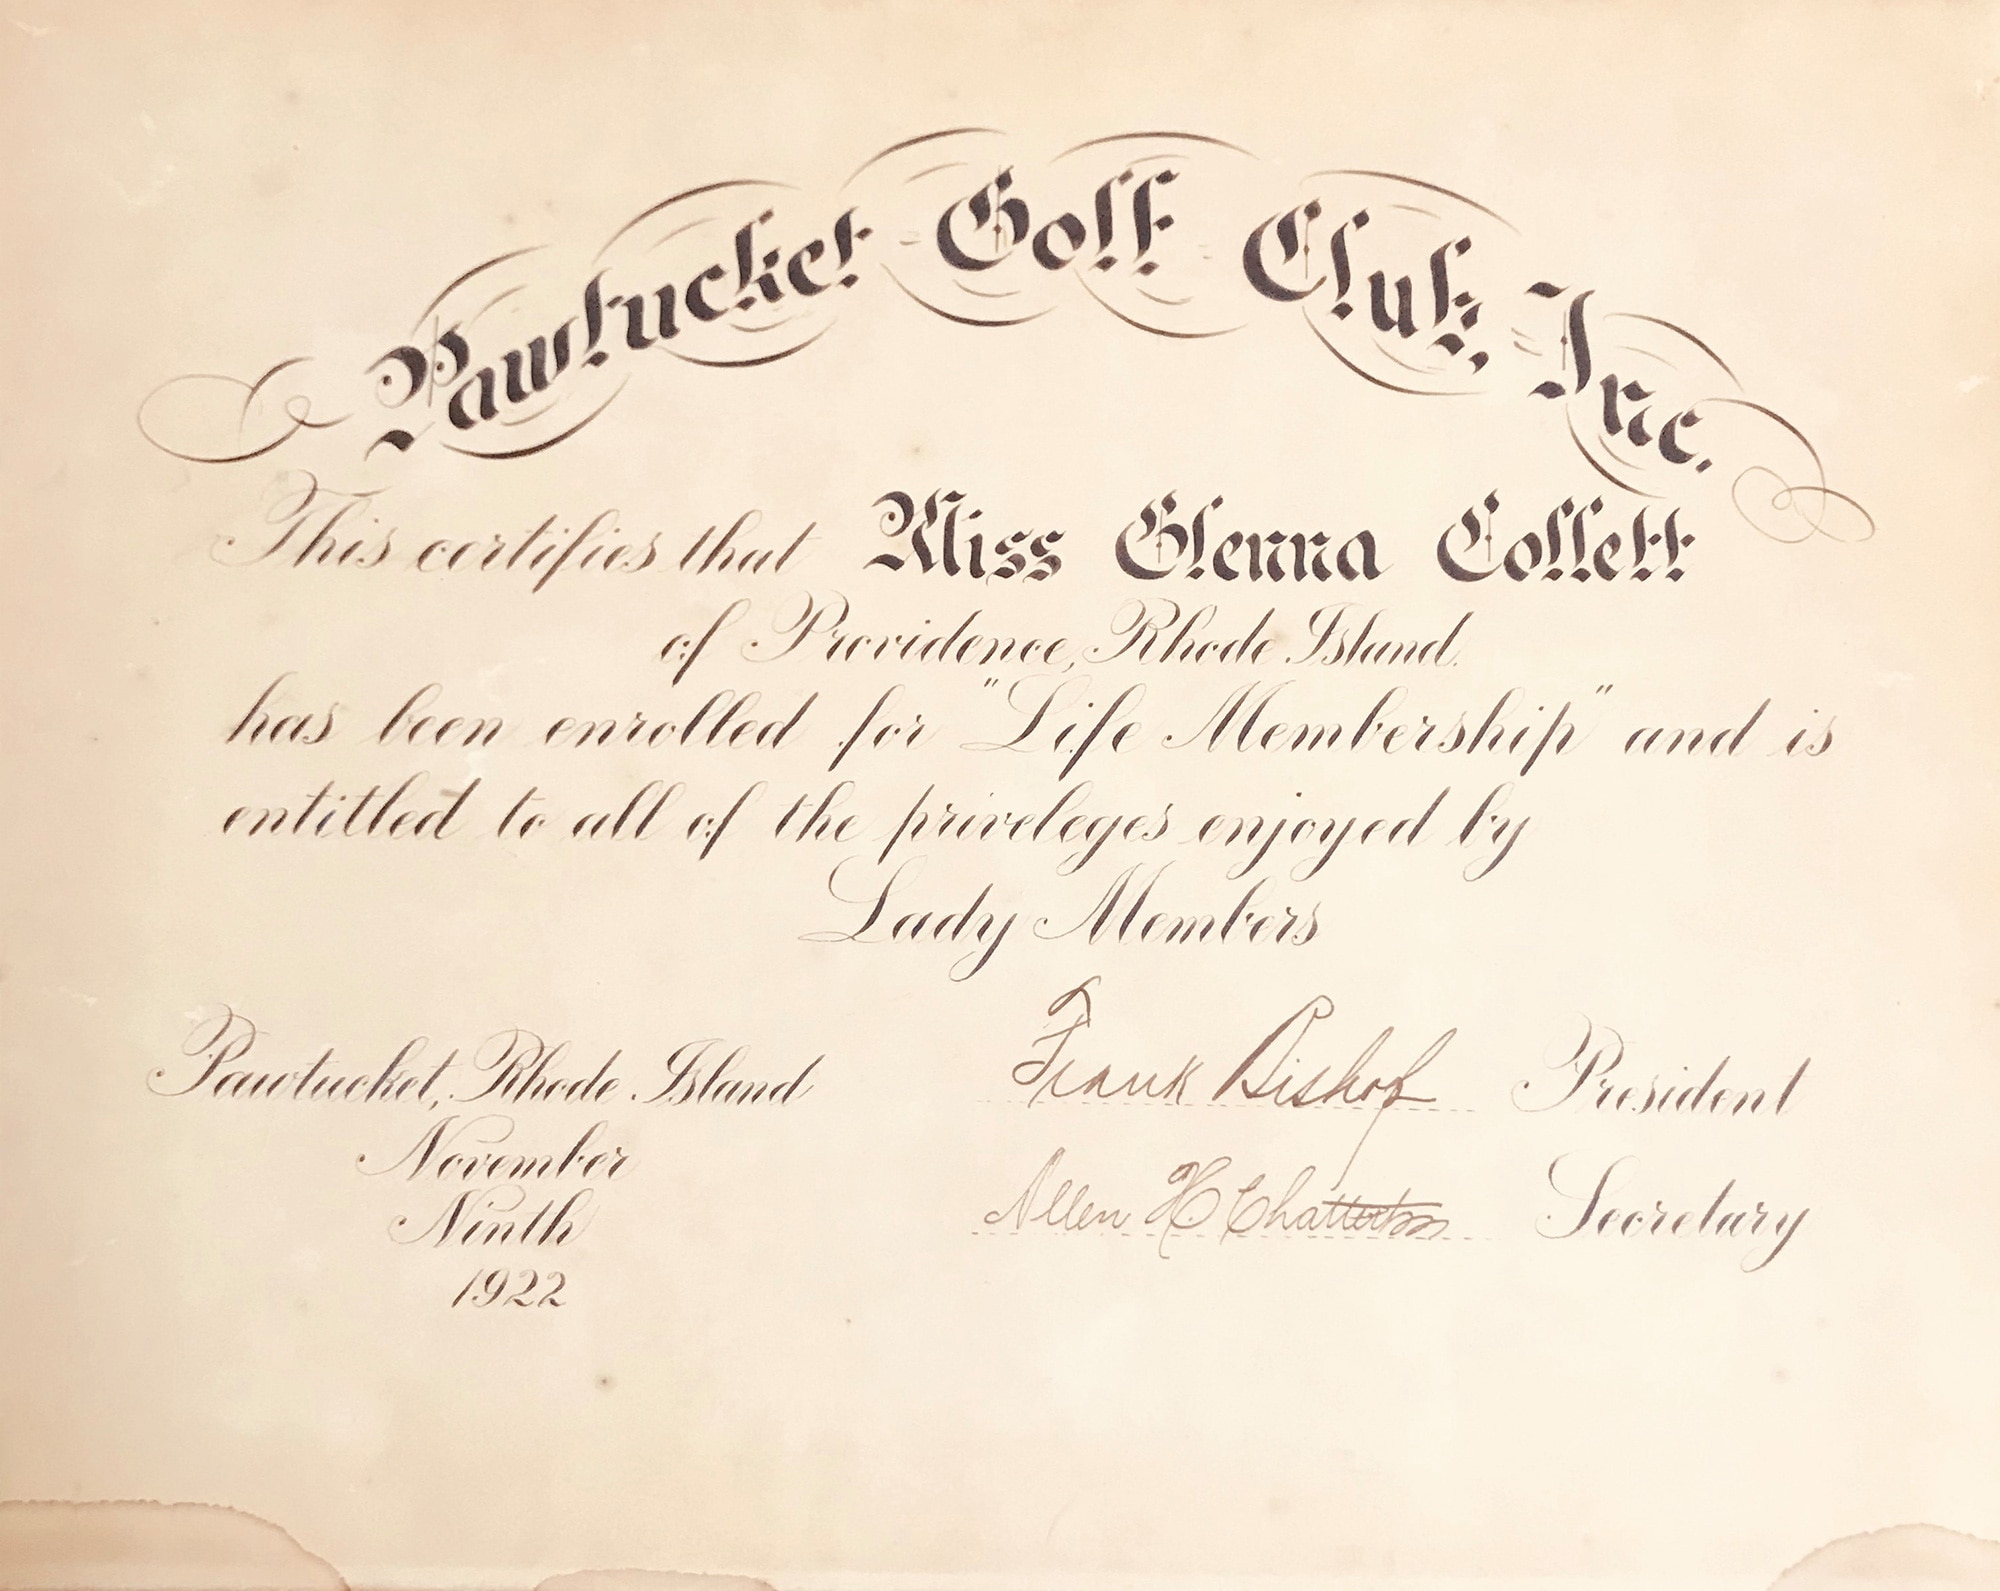 Pawtucket Golf Club, Inc.
This certifies that Miss Glenna Collett
of Providence, Rhode Island.
has been enrolled for "Life Membership" and is
entitled to all of the priveleges enjoyed by
Lady Members
Pawtucket, Rhode Island
November
Ninth
1922
Frank Bishop President
Allen H Chatterton Secretary